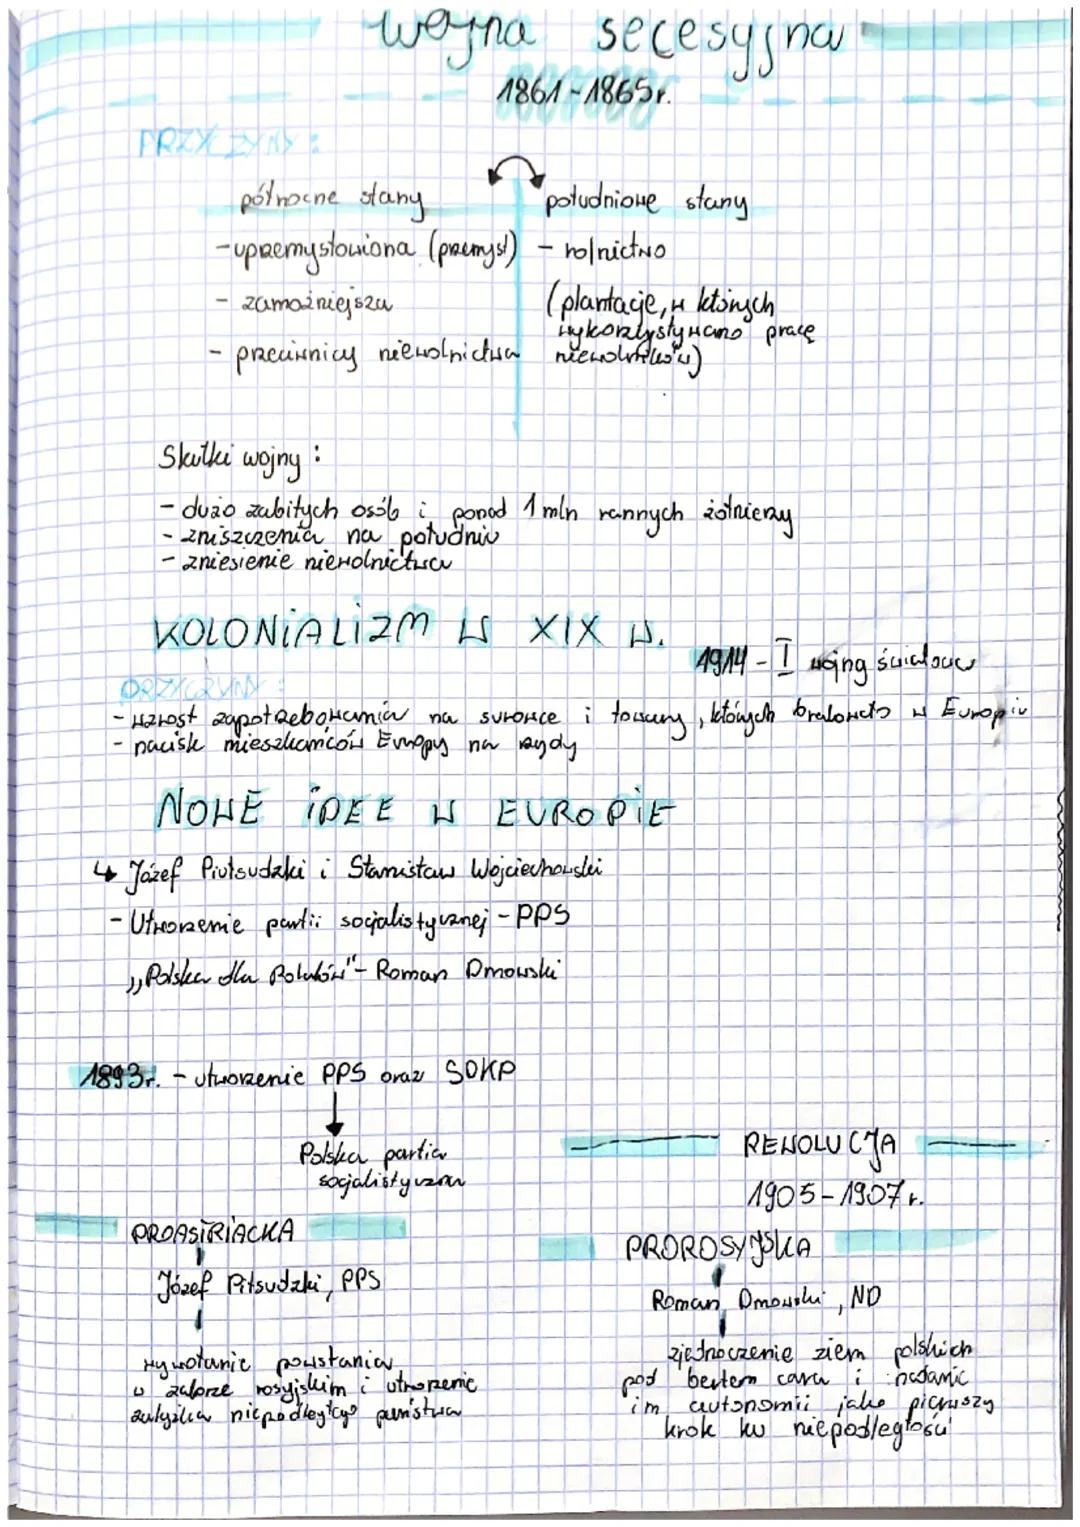 wojna secesyjna
1861-1865r.
PRZYCZYNY:
północne stany
- uprzemysłowiona (przemysł)
- zamożniejsza
- przeciwnicy niewolnictwa
południowe stany
- rolnictwo
(plantacje, w których
wykorzystywano pracę
niewolników)
Skutki wojny:
- dużo zabitych osób i ponad 1 mln rannych żołnierzy
- zniszczenia na południu
- zniesienie niewolnictwa
KOLONIALIZM W XIX W.
1914 - I wojną światową
PRZYCZYNY:
- wzrost zapotrzebowania na surowce i towary, których brakowało w Europie
- nacisk mieszkańców Europy na rządy
NOWE IDEE W EUROPIE
↳ Józef Piułsudzki i Stanisław Wojciechowski
- Utworzenie partii socjalistycznej - PPS
„Polska dla Polaków" - Roman Dmowski
1893r. - utworzenie PPS oraz SDKP
Polska partia
socjalistyczna
REWOLUCJA
1905-1907r.
PROASTRIACKA
Józef Piłsudzki, PPS
wywołanie powstania
w zaborze rosyjskim i utworzenie
niepodległego państwa
PROROSYJSKA
Roman Dmowski, ND
zjednoczenie ziem polskich
pod berłem cara i nadanie
im autonomii jako pierwszy
krok ku niepodległości